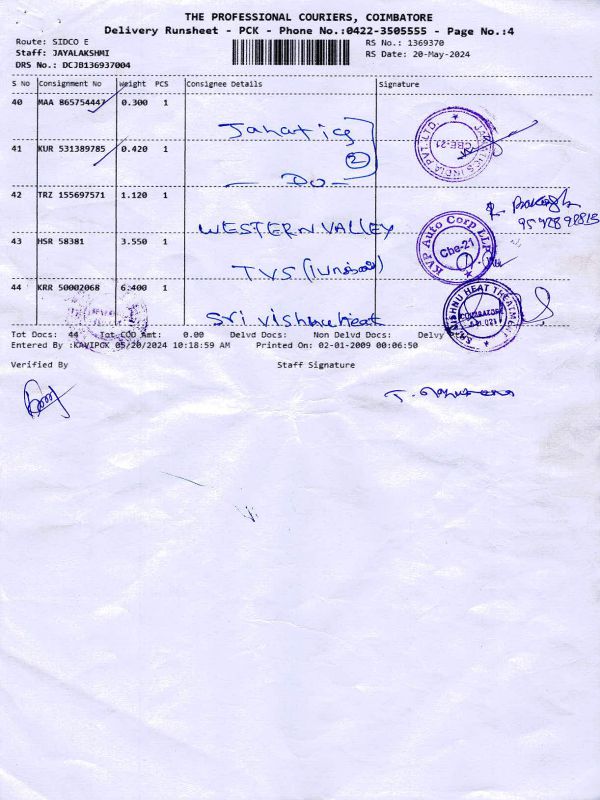 THE PROFESSIONAL COURIERS, COIMBATORE
Delivery Runsheet - PCK - Phone No.:0422-3505555 - Page No.:4
Route: SIDCO E
RS No.: 1369370
Staff: JAYALAKSHMI
RS Date: 20-May-2024
DRS No.: DCJB136937004
S No Consignment No Weight PCS Consignee Details Signature
40 MAA 865754447 0.300 1
Janatics
41 KUR 531389785 0.420 1
2
- DO -
42 TRZ 155697571 1.120 1
WESTERN VALLEY
43 HSR 58381 3.550 1
KVP Auto Corp LLP
Cbe-21
TVS
44 KRR 50002068 6.400 1
Sri Vishnu heat
COIMBATORE
Tot Docs: 44 Tot COD Amt: 0.00 Delvd Docs: Non Delvd Docs: Delvy
Entered By :KAVIPCK 05/20/2024 10:18:59 AM Printed On: 02-01-2009 00:06:50
Verified By Staff Signature